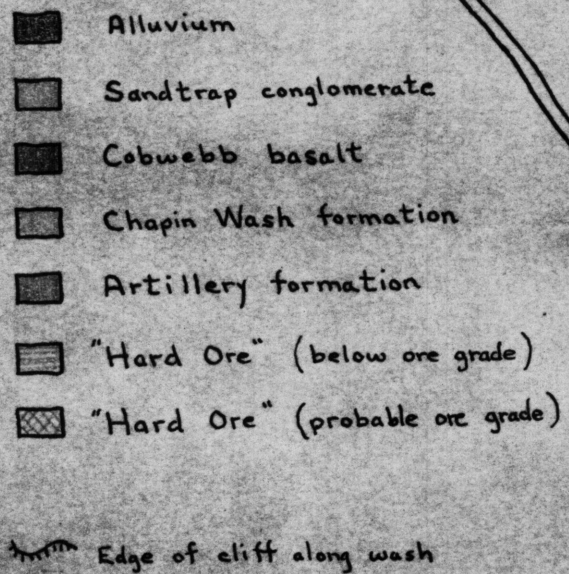 Alluvium
Sandtrap conglomerate
Cobwebb basalt
Chapin Wash formation
Artillery formation
"Hard Ore" (below ore grade)
"Hard Ore" (probable ore grade)
Edge of cliff along wash